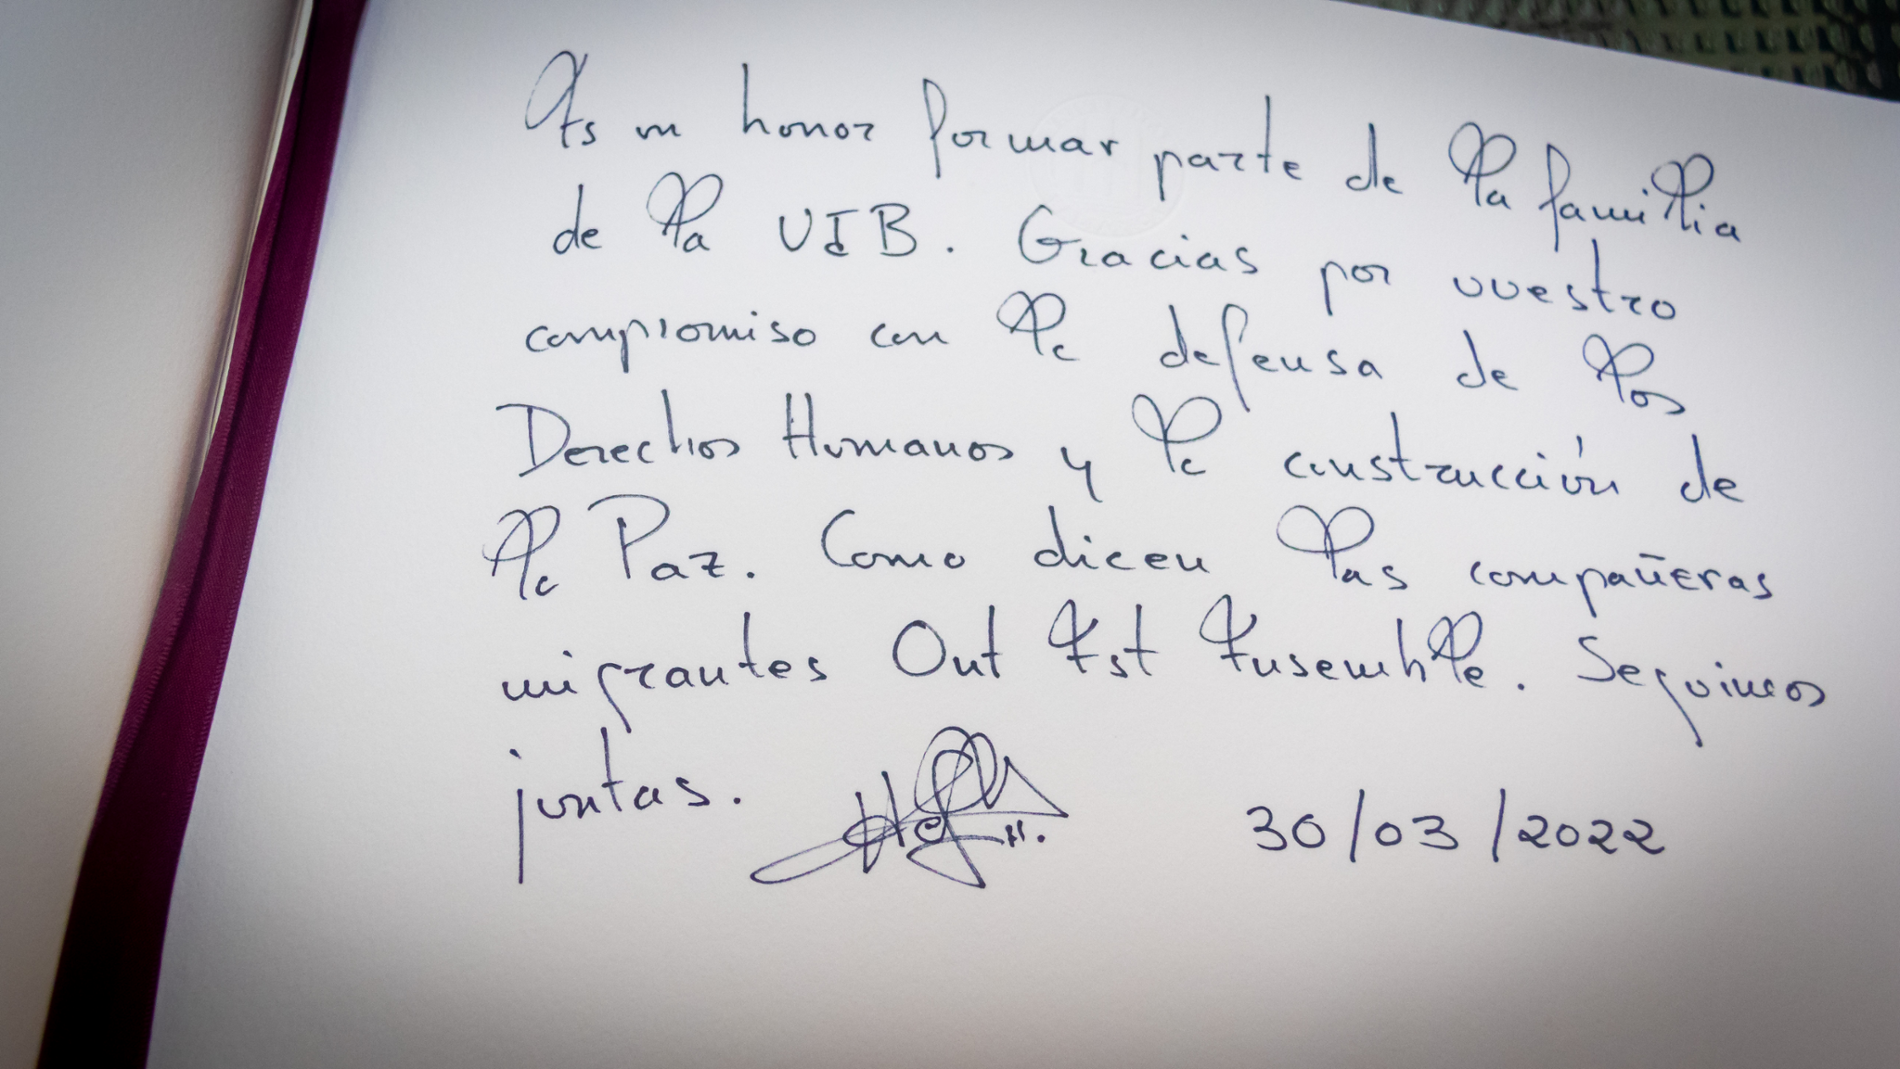 Es un honor formar parte de la familia
de la UIB. Gracias por vuestro
compromiso con la defensa de los
Derechos Humanos y la construcción de
la Paz. Como dicen las compañeras
migrantes Out Est Ensemble. Seguimos
juntas.
30/03/2022